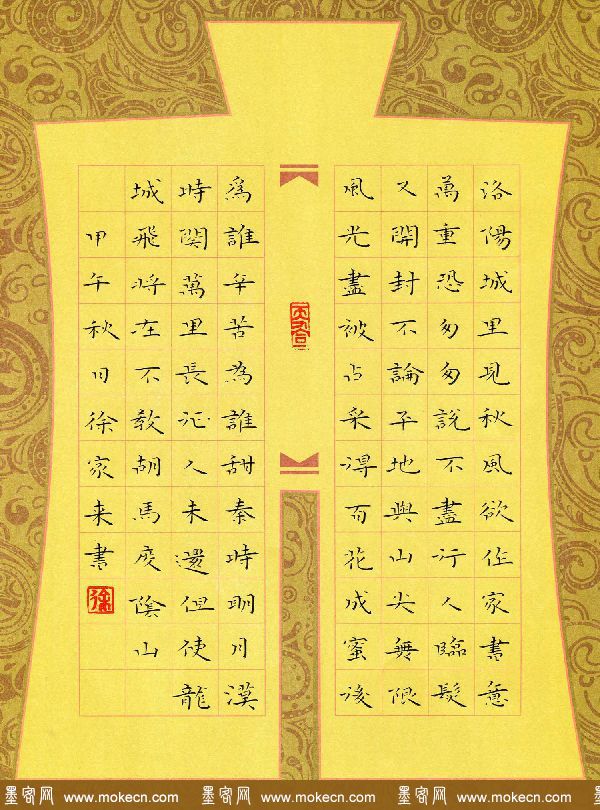 洛陽城里見秋風欲作家書意
萬重恐匆匆說不盡行人臨髮
又開封不論平地與山尖無限
風光盡被占采得百花成蜜後
爲誰辛苦為誰甜秦時明月漢
時關萬里長征人未還但使龍
城飛將在不教胡馬度陰山
甲午秋月徐家来書
徐
墨客网 www.mokecn.com 墨客网 www.mokecn.com 墨客网 www.mokecn.com